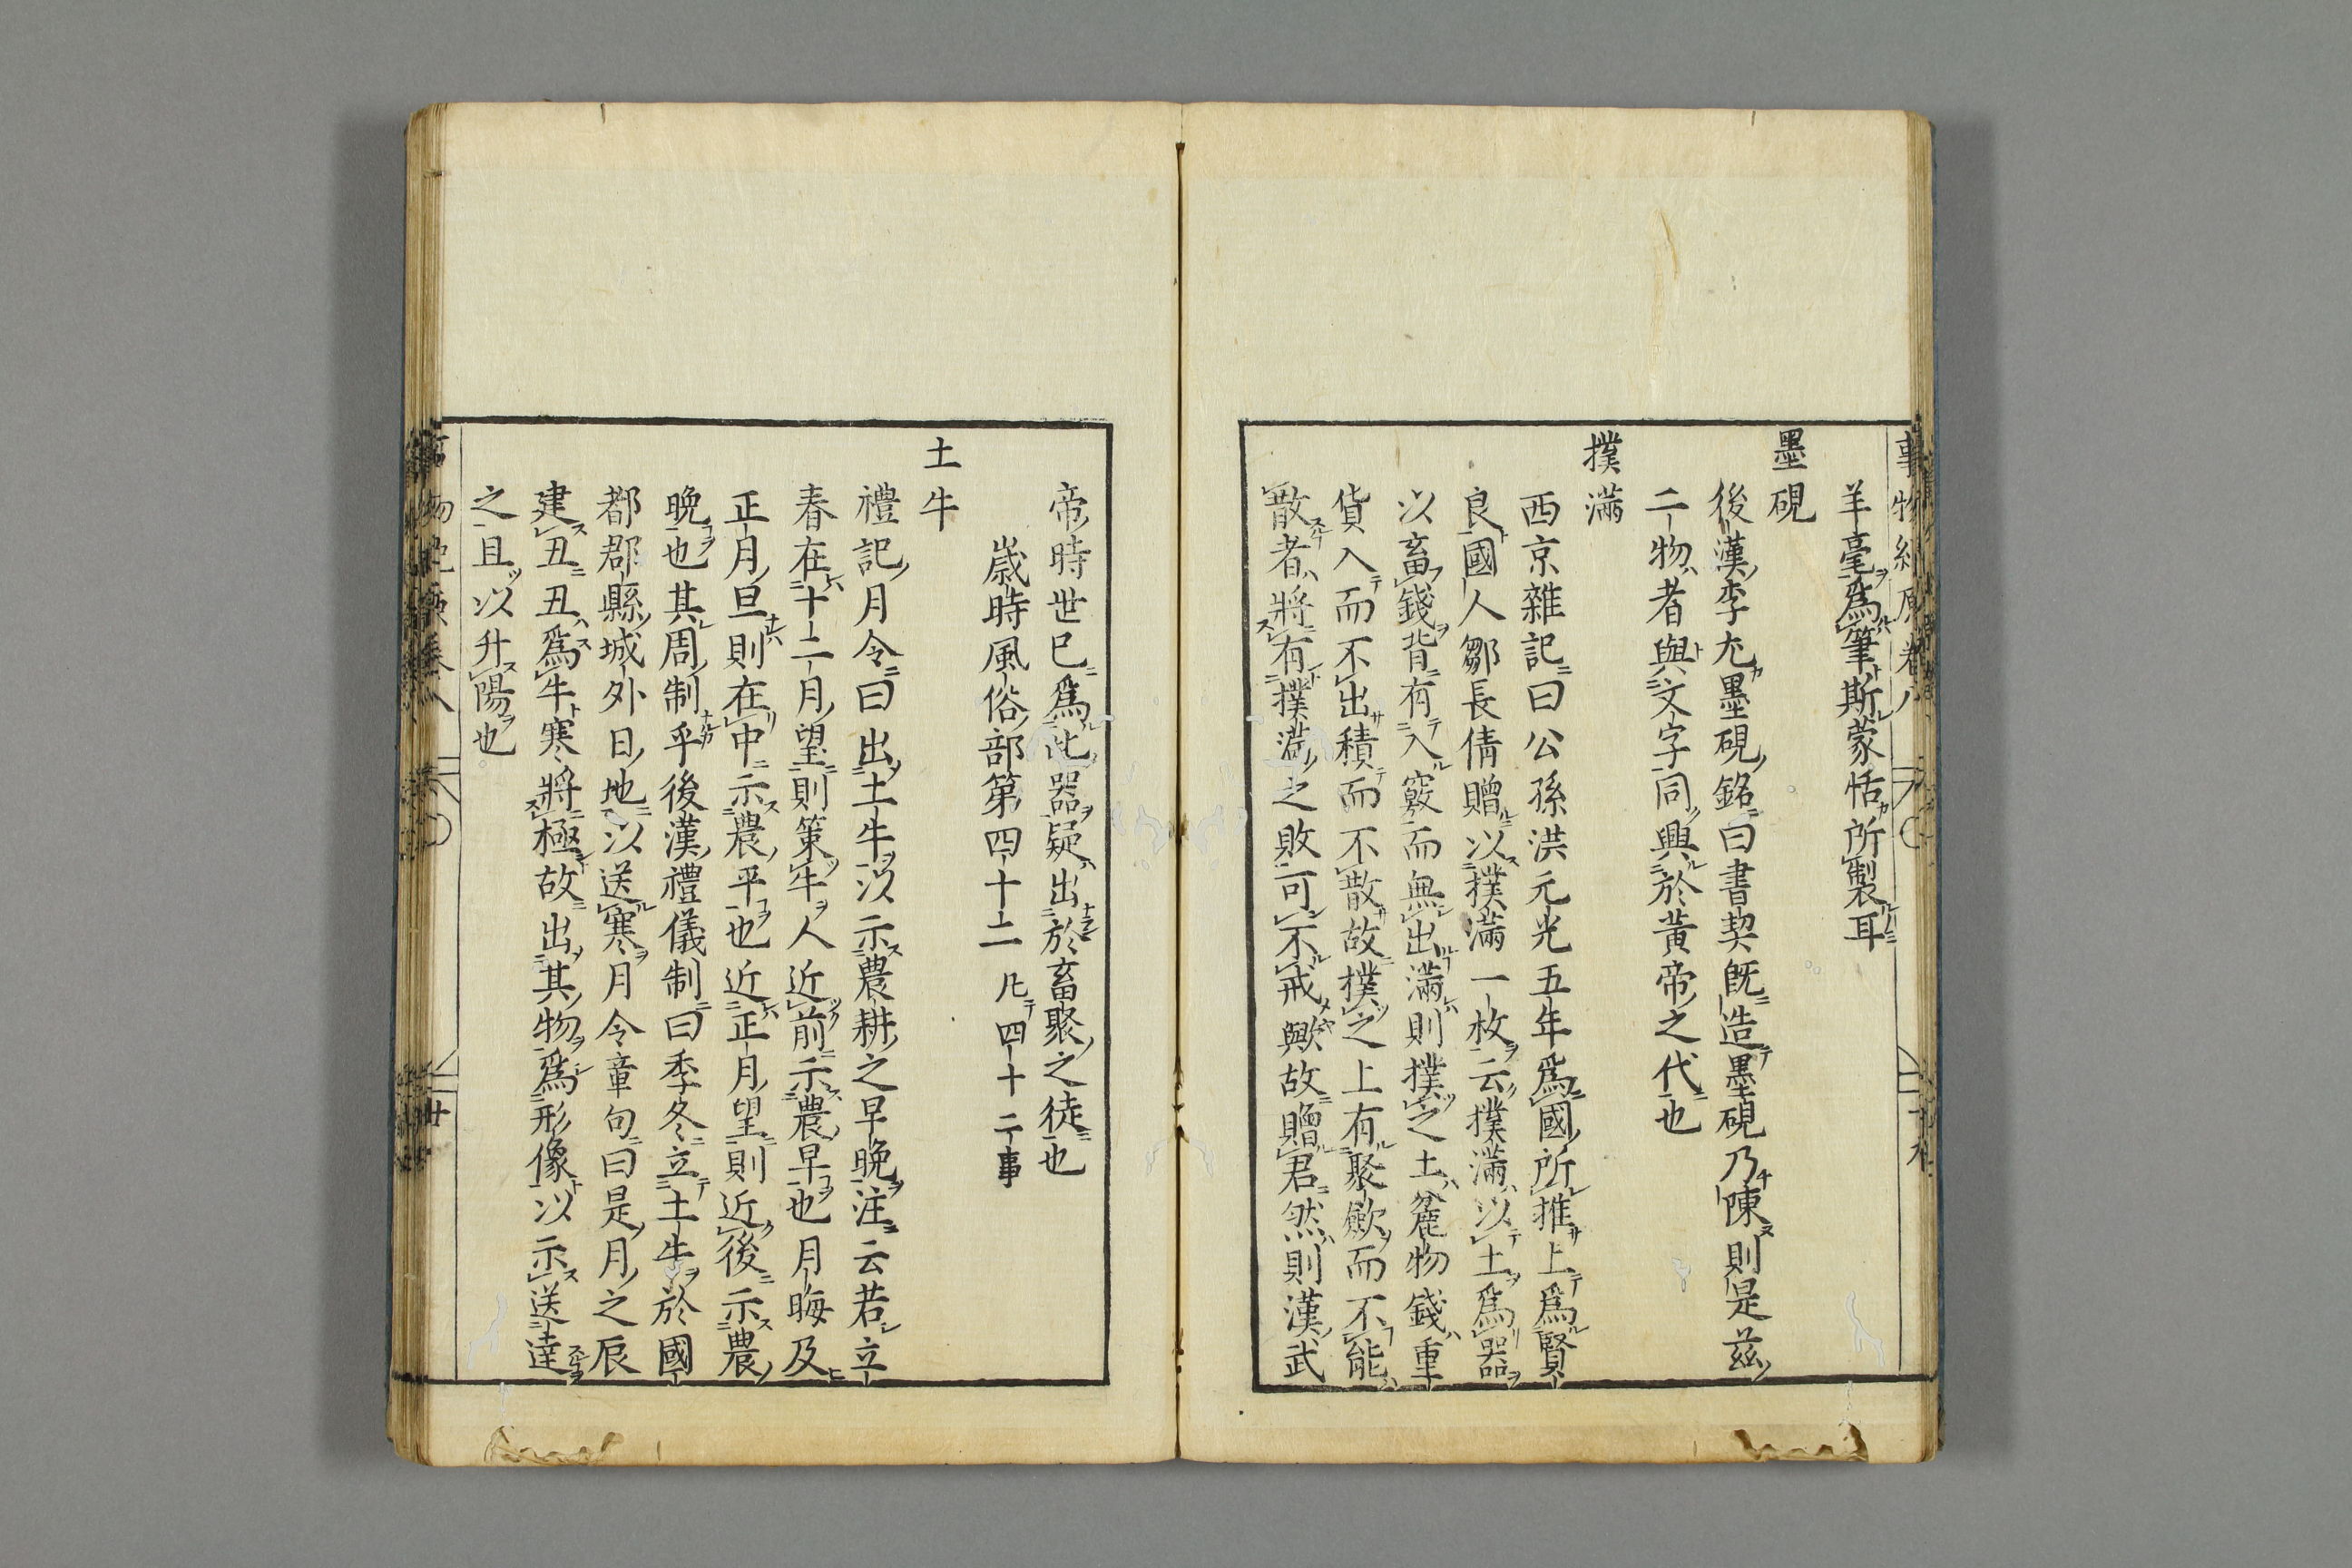 事物紀原卷八
羊毫爲筆斯蒙恬所製耳
墨硯
後漢李尤墨硯銘曰書契旣造墨硯乃陳則是茲
二物者與文字同興於黃帝之代也
撲滿
西京雜記曰公孫洪元光五年爲國所推上爲賢
良國人鄒長倩贈以撲滿一枚云撲滿以土爲器
以畜錢背有入竅而無出滿則撲之土麄物錢重
貨入而不出積而不散故撲之上有聚歛而不能
散者將有撲滿之敗可不戒歟故贈君然則漢武
帝時世巳爲此器疑出於畜聚之徒也
歲時風俗部第四十二 凡四十二事
土牛
禮記月令曰出土牛以示農耕之早晚注云若立
春在十二月望則策牛人近前示農早也月晦及
正月旦則在中示農平也近正月望則近後示農
晚也其周制乎後漢禮儀制曰季冬立土牛於國
都郡縣城外日地以送寒月令章句曰是月之辰
建丑丑爲牛寒將極故出其物爲形像以示送達
之且以升陽也